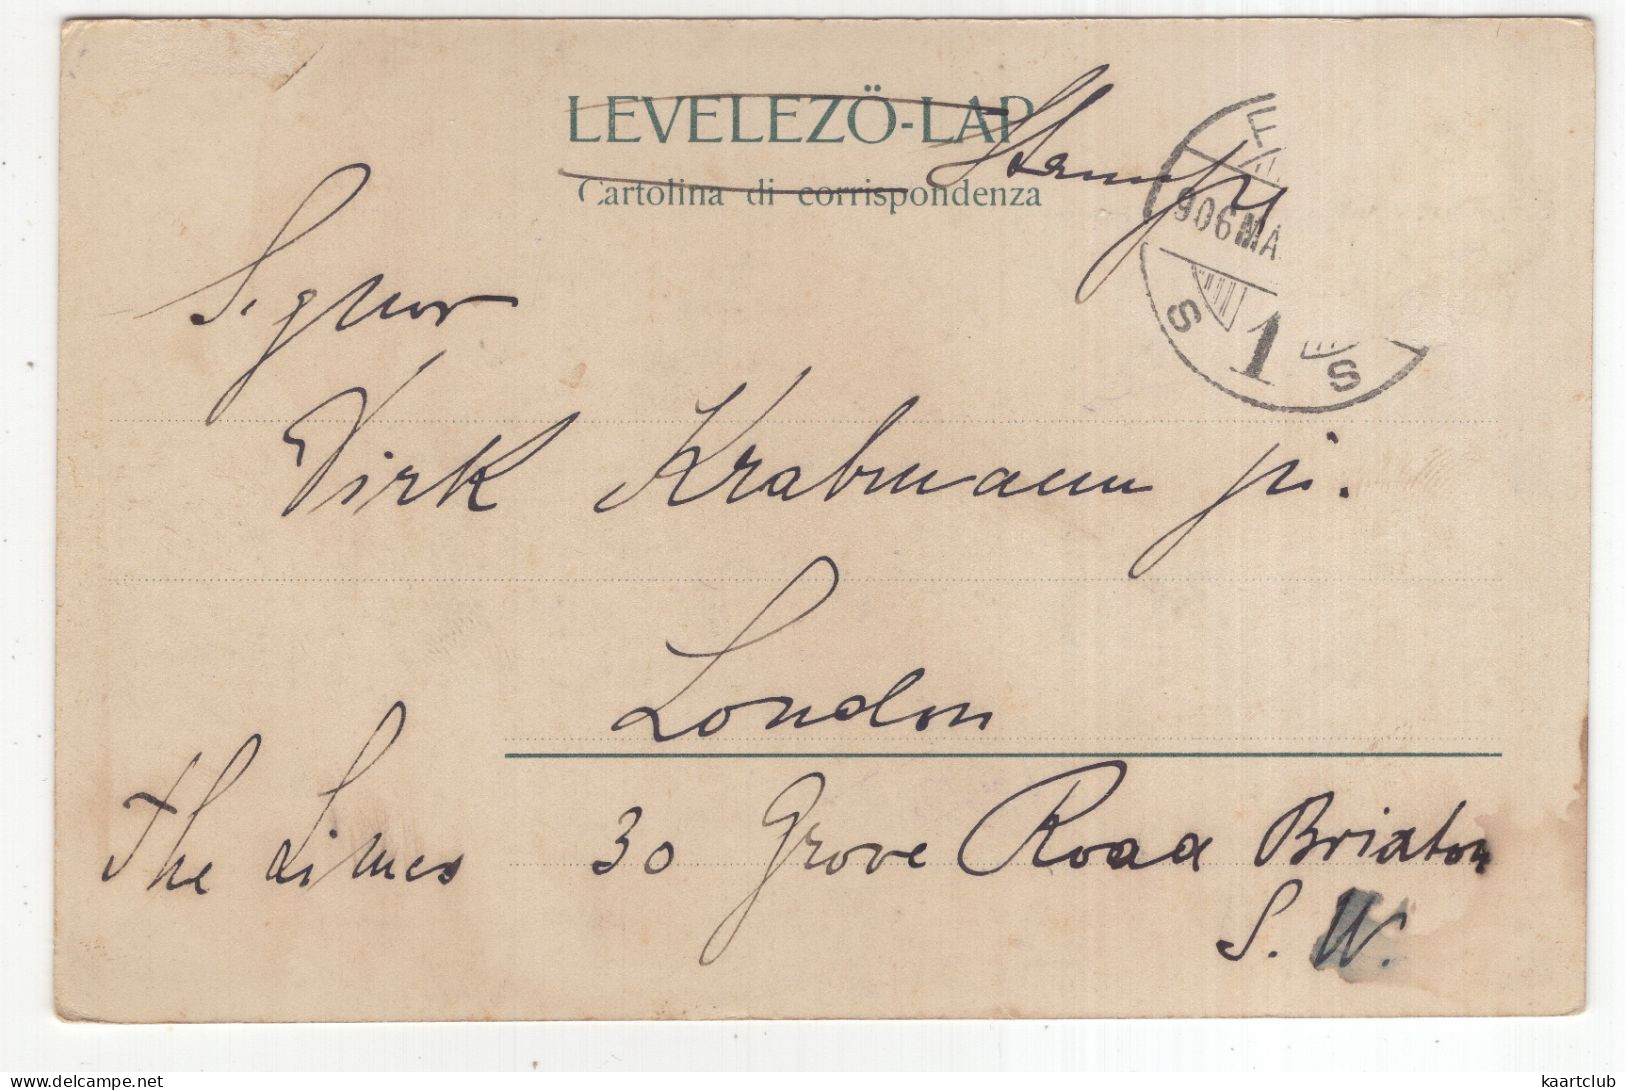 LEVELEZŐ-LAP
Cartolina di corrispondenza
906 MA
S 1 S
Signor
Dirk Krabmann jr.
London
The Limes 30 Grove Road Brixton
S. W.
kaartclub